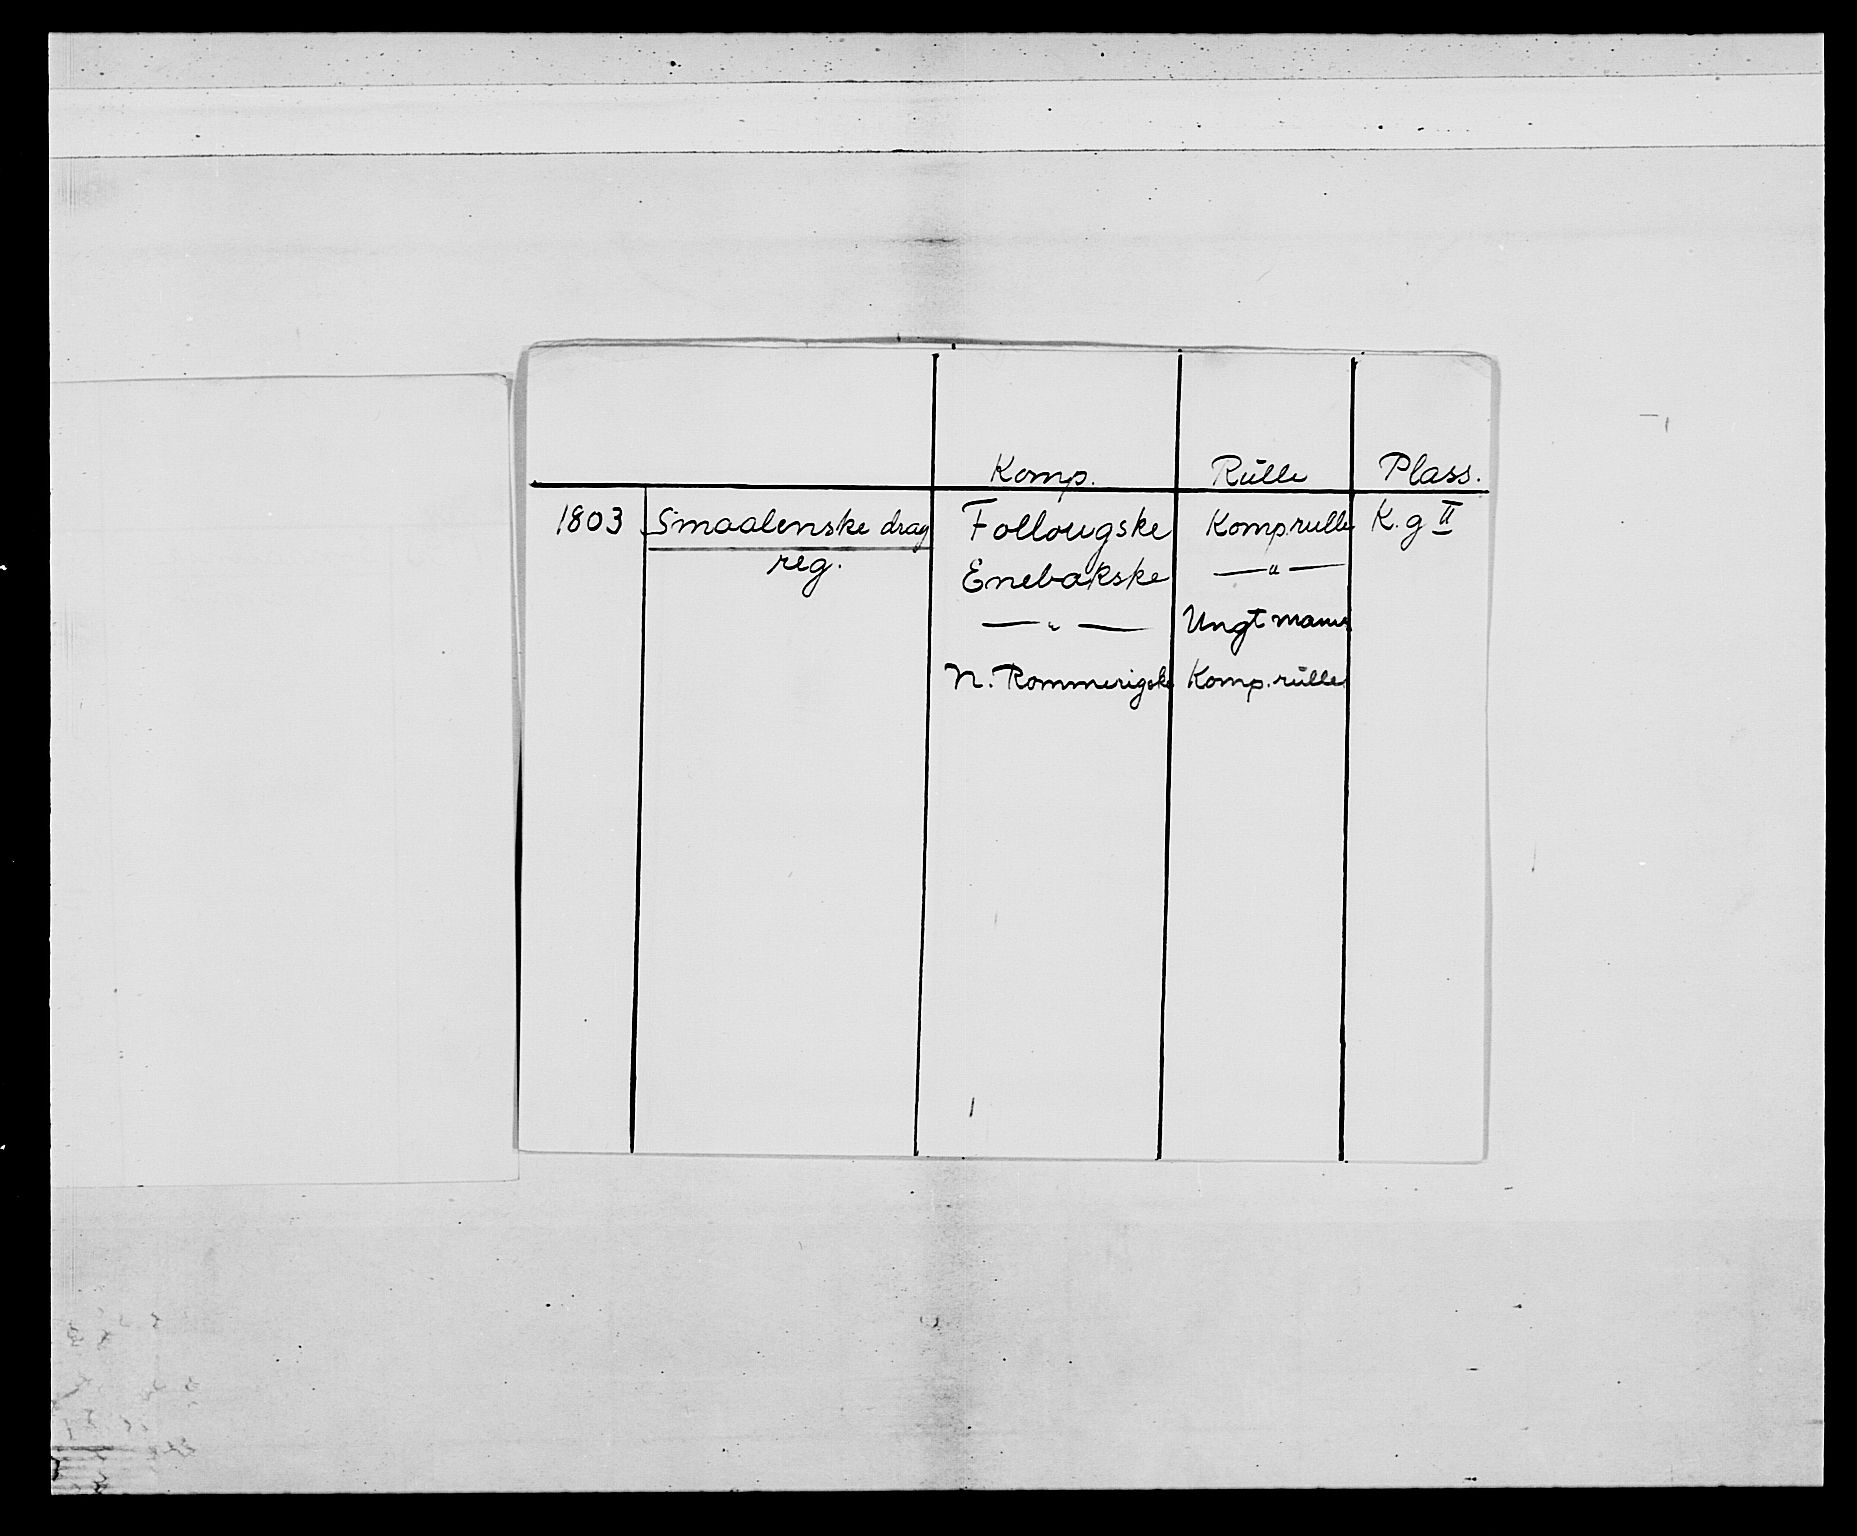 Komp. Rülle Plass.
1803 Smaalenske drag Follougske Komp.rulle K. g II
reg. Enebakske — " —
— " — Ungt mann
N. Rommerigske Komp.rülle